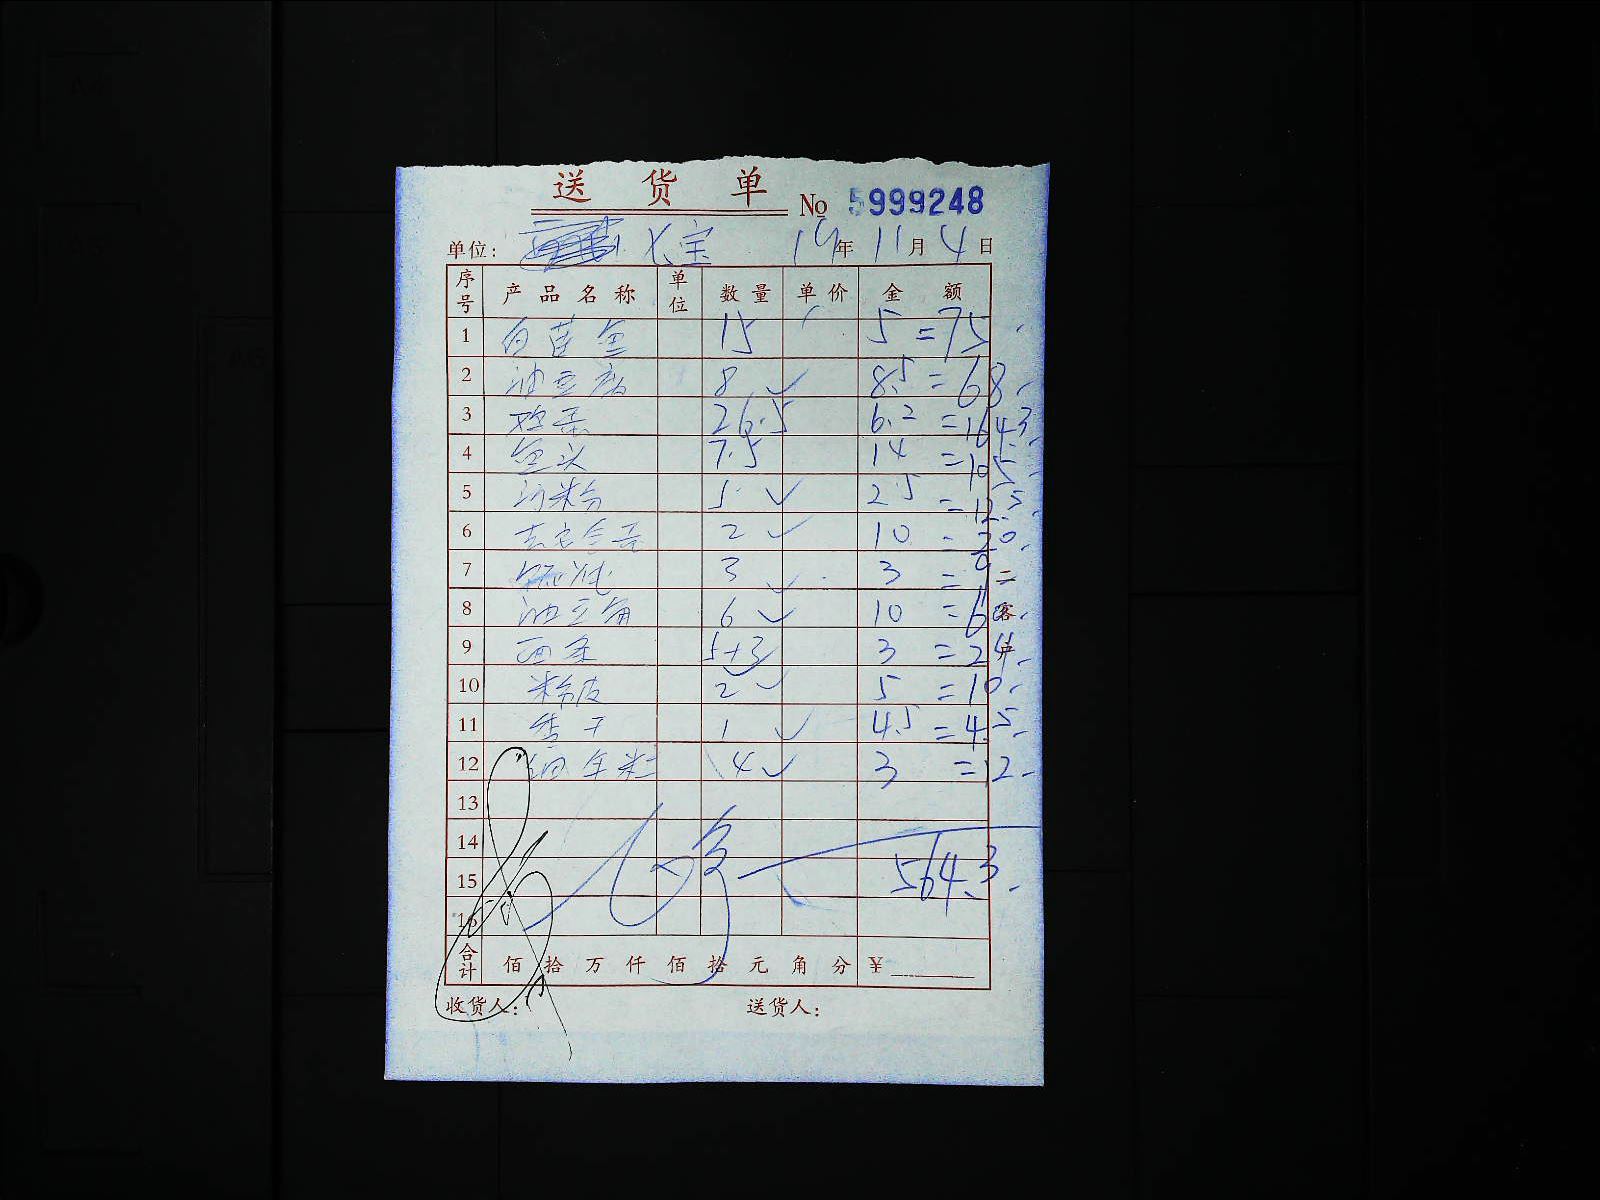 送货单 № 5999248
单位: 七宝 19年 11月 4日
序号 产品名称 单位 数量 单价 金额
1 15 5 =75
2 油豆腐 8 ✓ 8.5 =68
3 26.5 6.2 =164.3
4 鱼头 7.5 14 =105
5 河粉 5 ✓ 2.5 =12.5
6 2 ✓ 10 =20
7 3 ✓ 3 =9
8 油豆角 6 ✓ 10 =60
9 面条 5+3 3 =24
10 米粉皮 2 ✓ 5 =10
11 香干 1 ✓ 4.5 =4.5
12 4 ✓ 3 =12
13
14
15 564.3
16
合计 佰 拾 万 仟 佰 拾 元 角 分 ¥
收货人: 送货人:
二
客
户